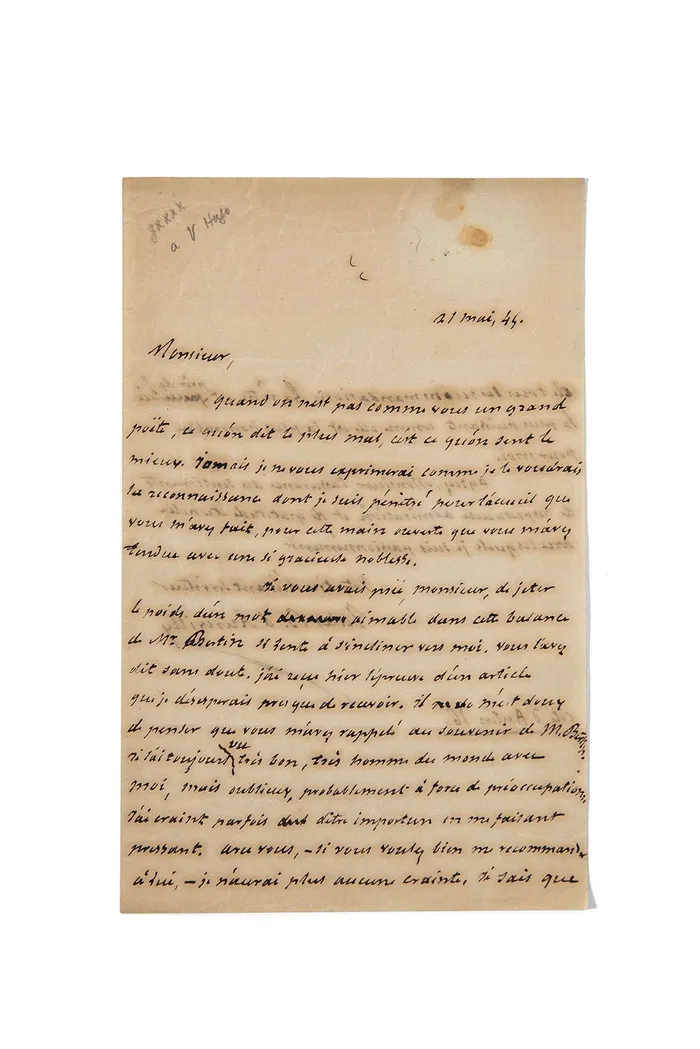 a V Hugo
21 mai, 45.
Monsieur,
quand on n'est pas comme vous un grand
poëte, ce qu'on dit le plus mal, c'est ce qu'on sent le
mieux. Jamais je ne vous exprimerai comme je le voudrais
la reconnaissance dont je suis pénétré pour l'accueil que
vous m'avez fait, pour cette main ouverte que vous m'avez
tendue avec une si gracieuse noblesse.
Je vous avais prié, monsieur, de jeter
le poids d'un mot aimable dans cette balance
de Mr Bertin si lente à s'incliner vers moi. vous l'avez
dit sans doute. j'ai reçu hier l'épreuve d'un article
que je désespérais presque de recevoir. il m'est doux
de penser que vous m'avez rappelé au souvenir de M. Bertin.
Je l'ai toujours vu très bon, très homme du monde avec
moi, mais oublieux, probablement à force de préoccupations,
J'ai craint parfois d'être importun en me faisant
pressant. avec vous, – si vous voulez bien me recommander
à lui, – je n'aurai plus aucune crainte. Je sais que